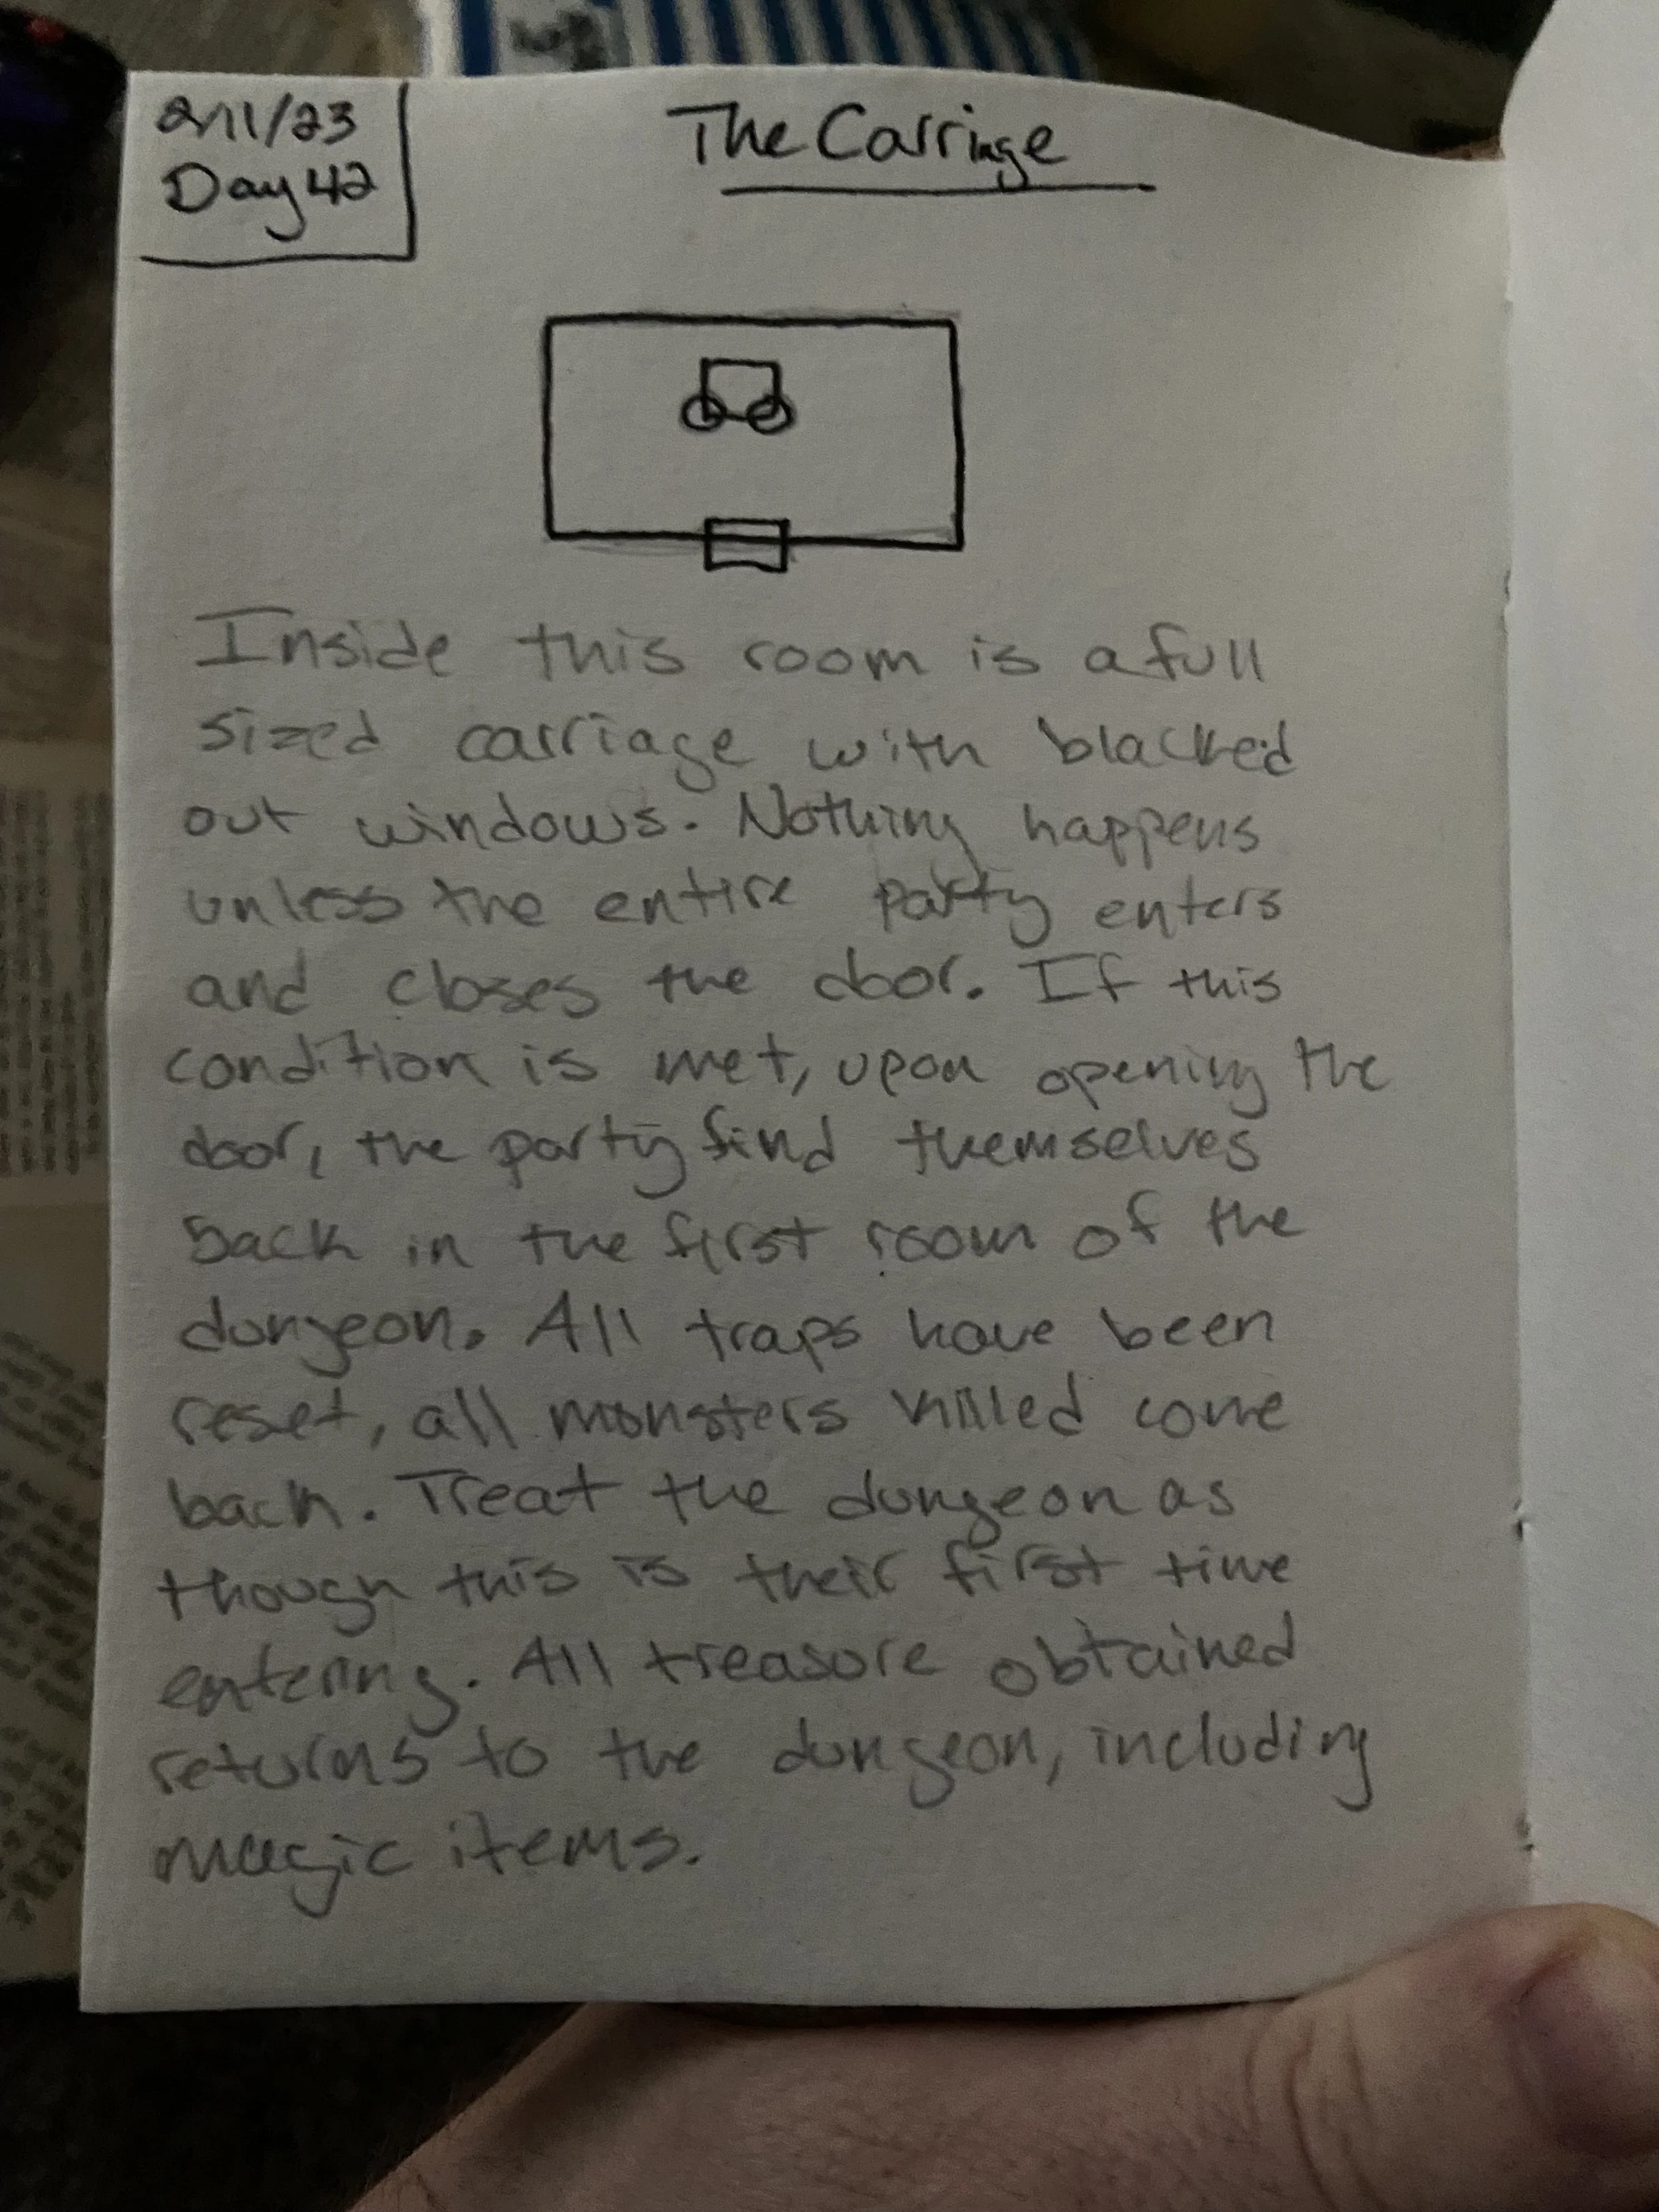 2/11/23
Day 42
The Carriage
Inside this room is a full
sized carriage with blacked
out windows. Nothing happens
unless the entire party enters
and closes the door. If this
condition is met, upon opening the
door, the party find themselves
back in the first room of the
dungeon. All traps have been
reset, all monsters killed come
back. Treat the dungeon as
though this is their first time
entering. All treasure obtained
returns to the dungeon, including
magic items.